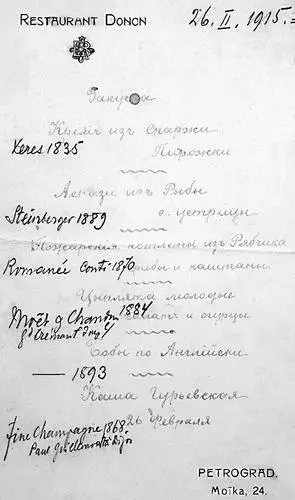 RESTAURANT DONON
26. II. 1915.=
Закуска
Кремъ изъ спаржи
Xeres 1835
Пирожки
изъ Рыбы
Steinberger 1889
и устрицы
Пожарскія котлеты изъ Рябчика
Romanée Conti 1870
грибы и каштаны
Цыплята молодые
Moët & Chandon 1884
Салатъ и огурцы
gd Crémant Imp
Бобы по Англійски
— 1893
Каша Гурьевская
26 Февраля
fine Champagne 1868.
Paul
PETROGRAD.
Moïka, 24.